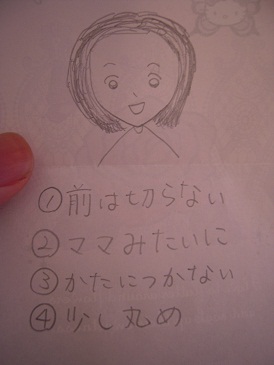 ①前は切らない
②ママみたいに
③かたにつかない
④少し丸め